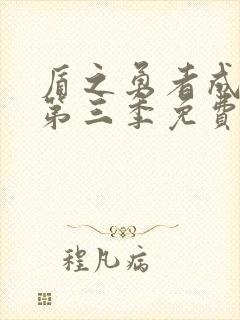 盾之勇者成
第三季免費
程凡病